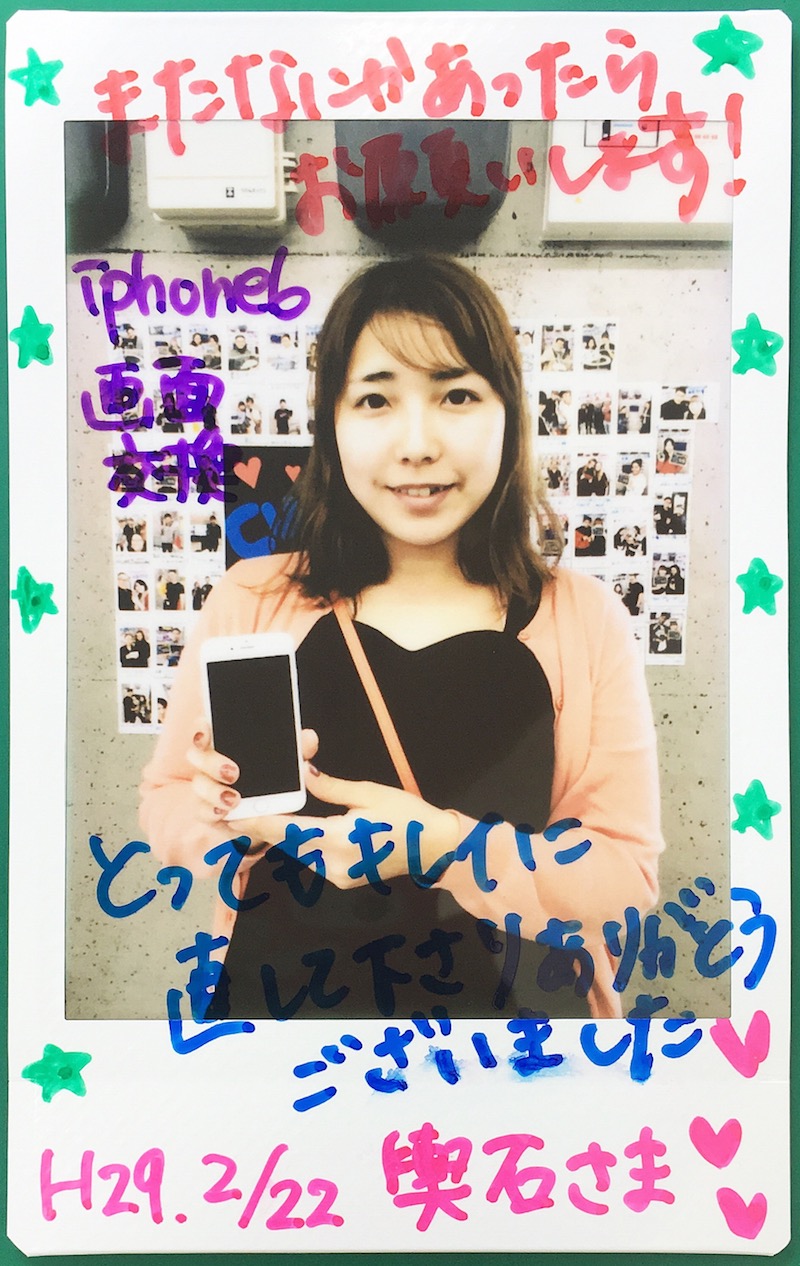 またなにかあったら
お願いします!
iphone6
画面
交換
とってもキレイに
直して下さりありがとう
ございました
H29.2/22 輿石さま